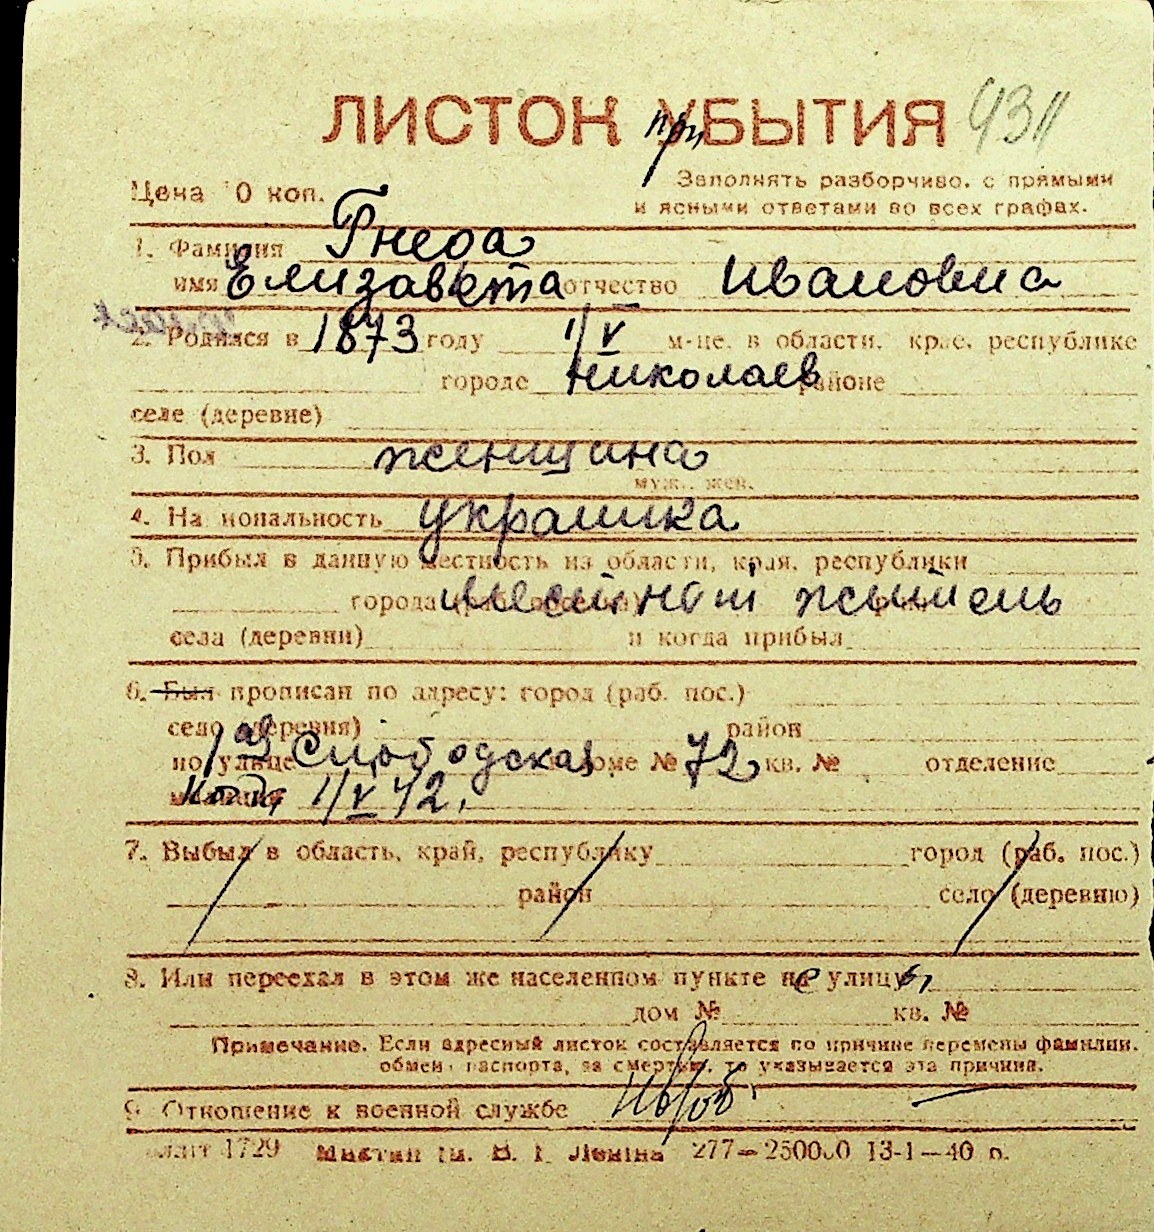 ЛИСТОК УБЫТИЯ при 4311
Цена 10 коп. Заполнять разборчиво, с прямыми
и ясными ответами во всех графах.
1. Фамилия Гнеда
имя Елизавета отчество Ивановна
2. Родился в 1873 году 1/V м-це, в области, крае, республике
городе Николаев районе
селе (деревне)
3. Пол женщина
муж., жен.
4. Национальность украинка
5. Прибыл в данную местность из области, края, республики
города местный житель
села (деревни) и когда прибыл
6. Был прописан по адресу: город (раб. пос.)
село (деревня) район
по улице 1ая Слободская доме № 72 кв. № отделение
когда 1/V 42.
7. Выбыл в область, край, республику город (раб. пос.)
район село (деревню)
8. Или переехал в этом же населенном пункте не улицы
дом № кв. №
Примечание. Если адресный листок составляется по причине перемены фамилии,
обмена паспорта, за смертью, то указывается эта причина.
9. Отношение к военной службе
1729 Миктип Ім. В. І. Леніна 277—250000 13-1—40 р.